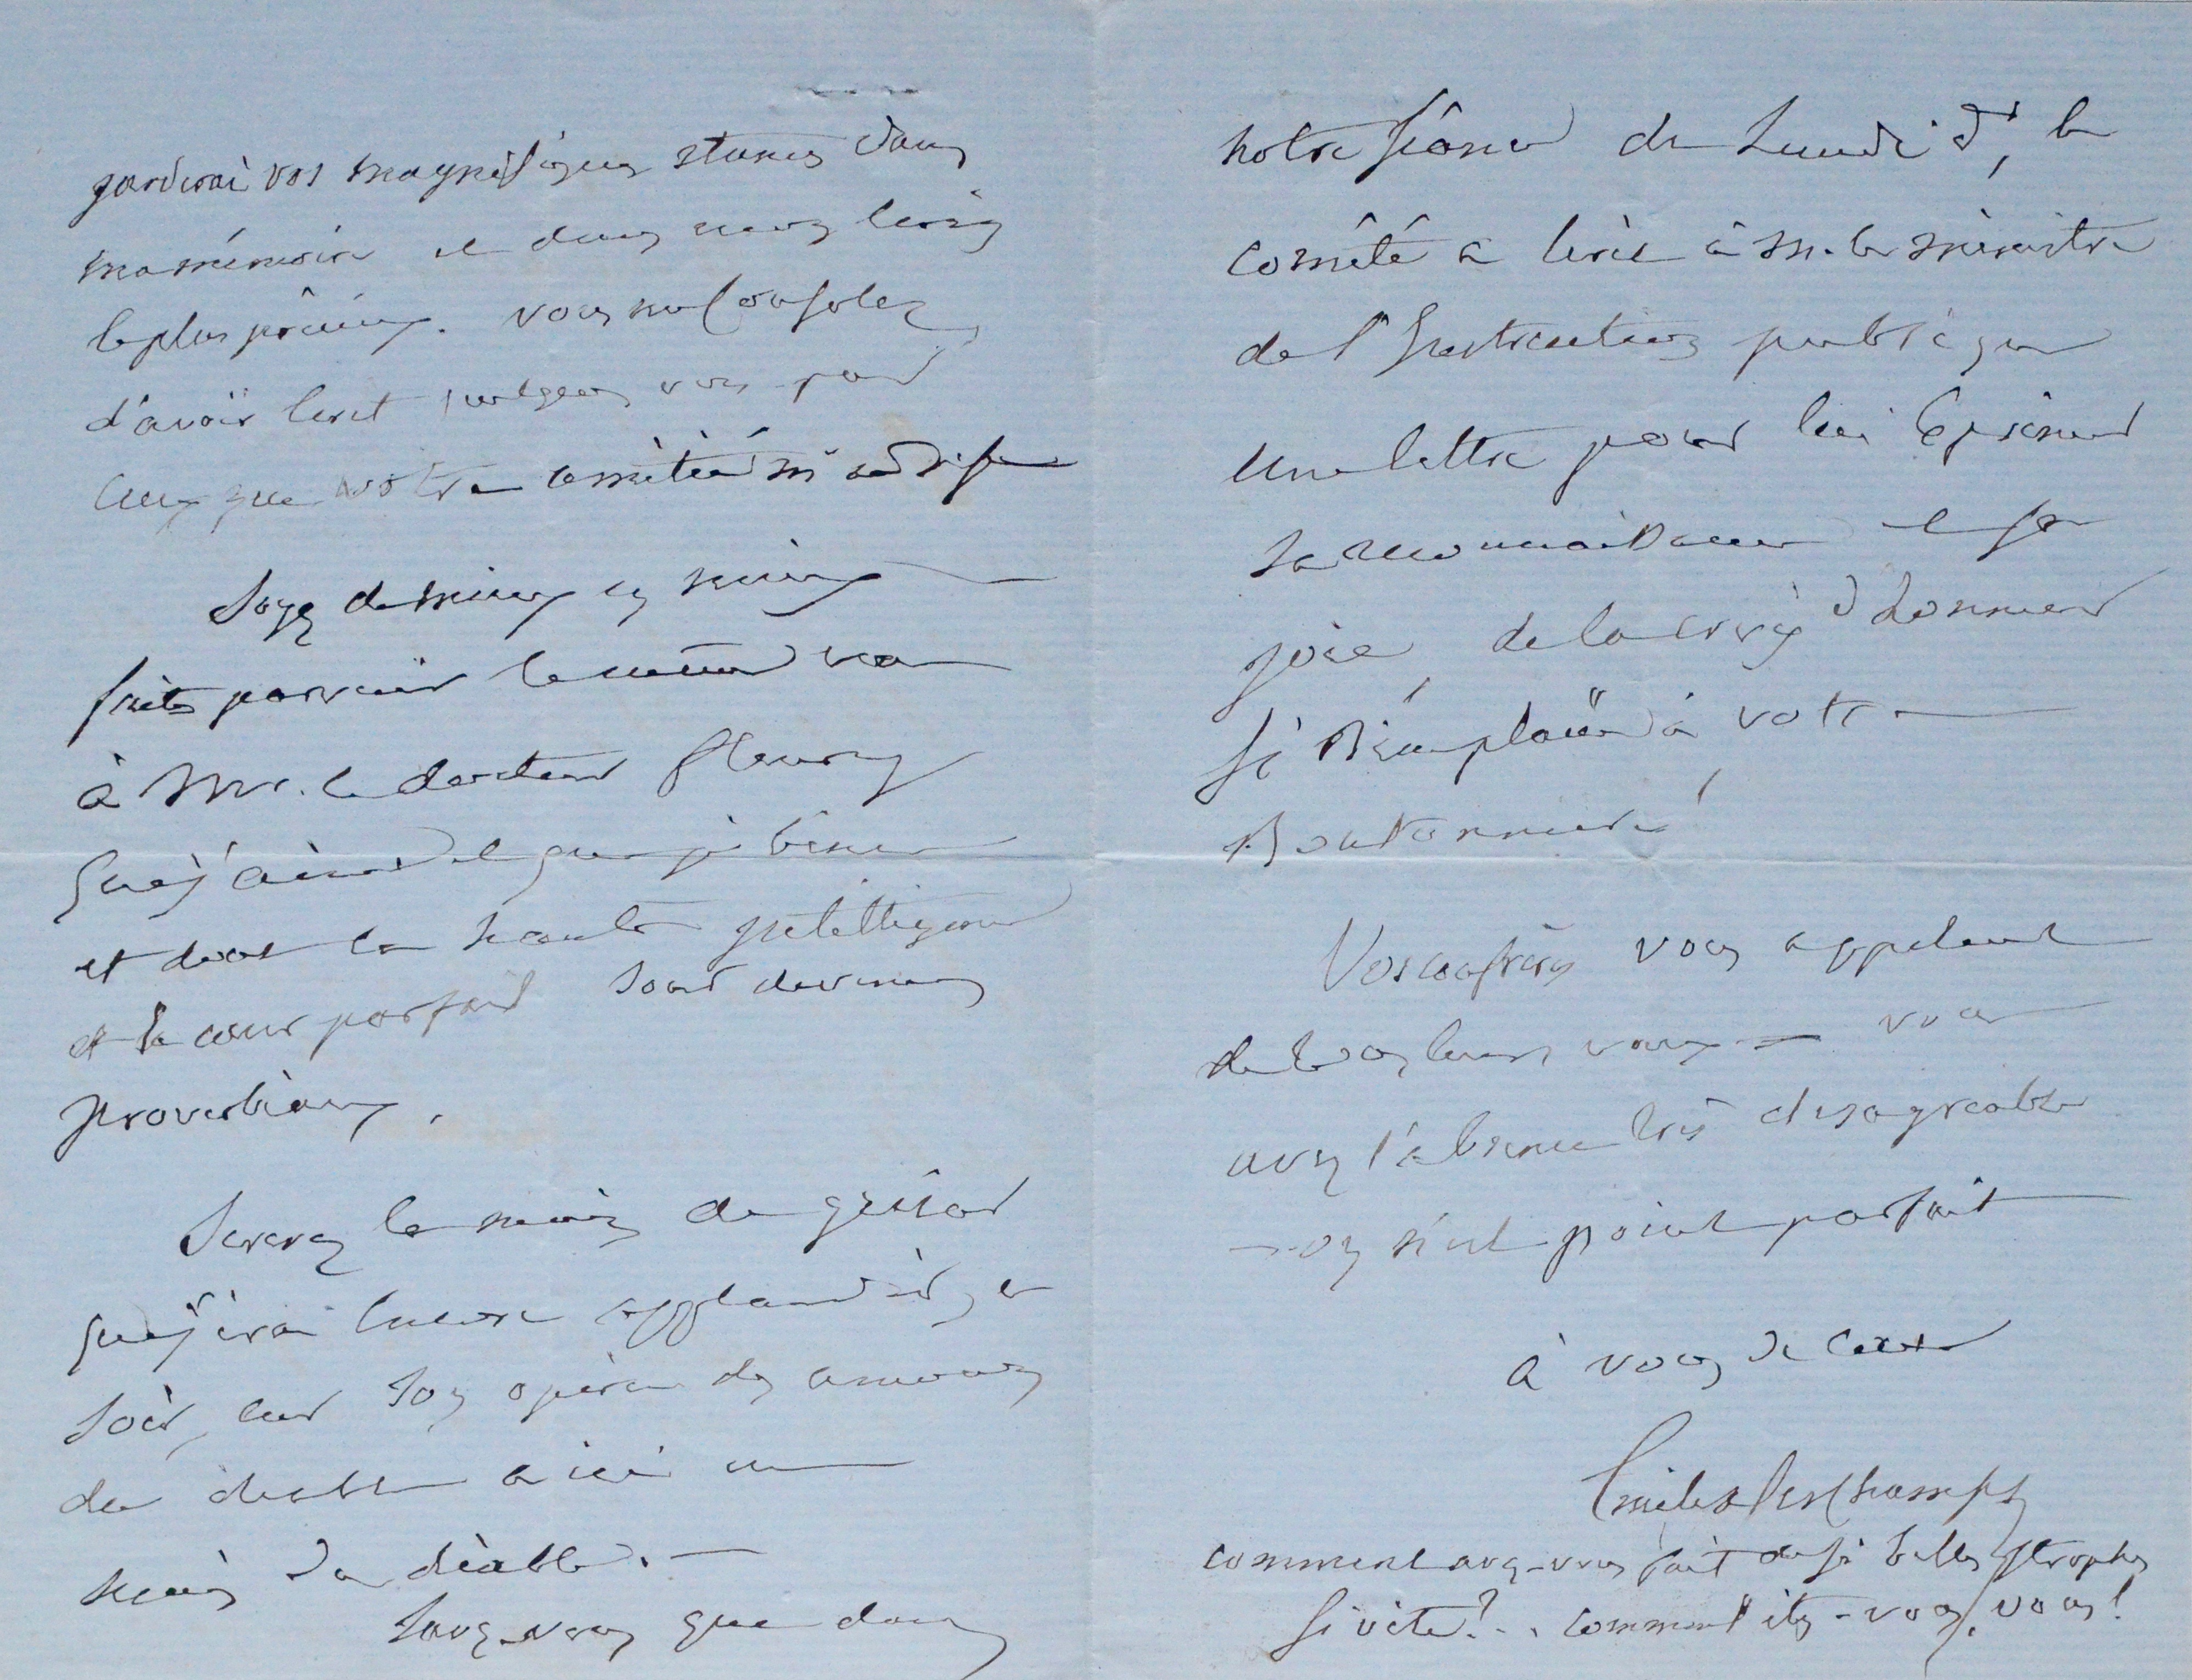 garderai vos magnifiques stances dans
ma mémoire et dans mon écrin
le plus précieux. Vous me consolez
d'avoir écrit quelques vers par
ceux que votre amitié m'adresse
Soyez de mieux en mieux
faites parvenir le même vœu
à Mr. le docteur Fleury
que j'aime et que je bénis
et dont la haute intelligence
et le cœur parfait sont devenus
proverbiaux.
Serrez la main de Grisar
que j'irai encore applaudir, ce
soir, car son opéra des amours
du diable a ici un
succès du diable. —
Savez-vous que dans
notre séance de Lundi dr, le
comité a écrit à M. le ministre
de l'Instruction publique
une lettre pour lui exprimer
sa reconnaissance et sa
joie, de la croix d'honneur
si bien placée à votre
Boutonnière!
Vos confrères vous appellent
de tous leurs vœux — vous
avez l'absence très désagréable
— on n'est point parfait
à vous de cœur
Emile Deschamps
comment avez-vous fait de si belles strophes
si vite?.. comment êtes-vous, vous!